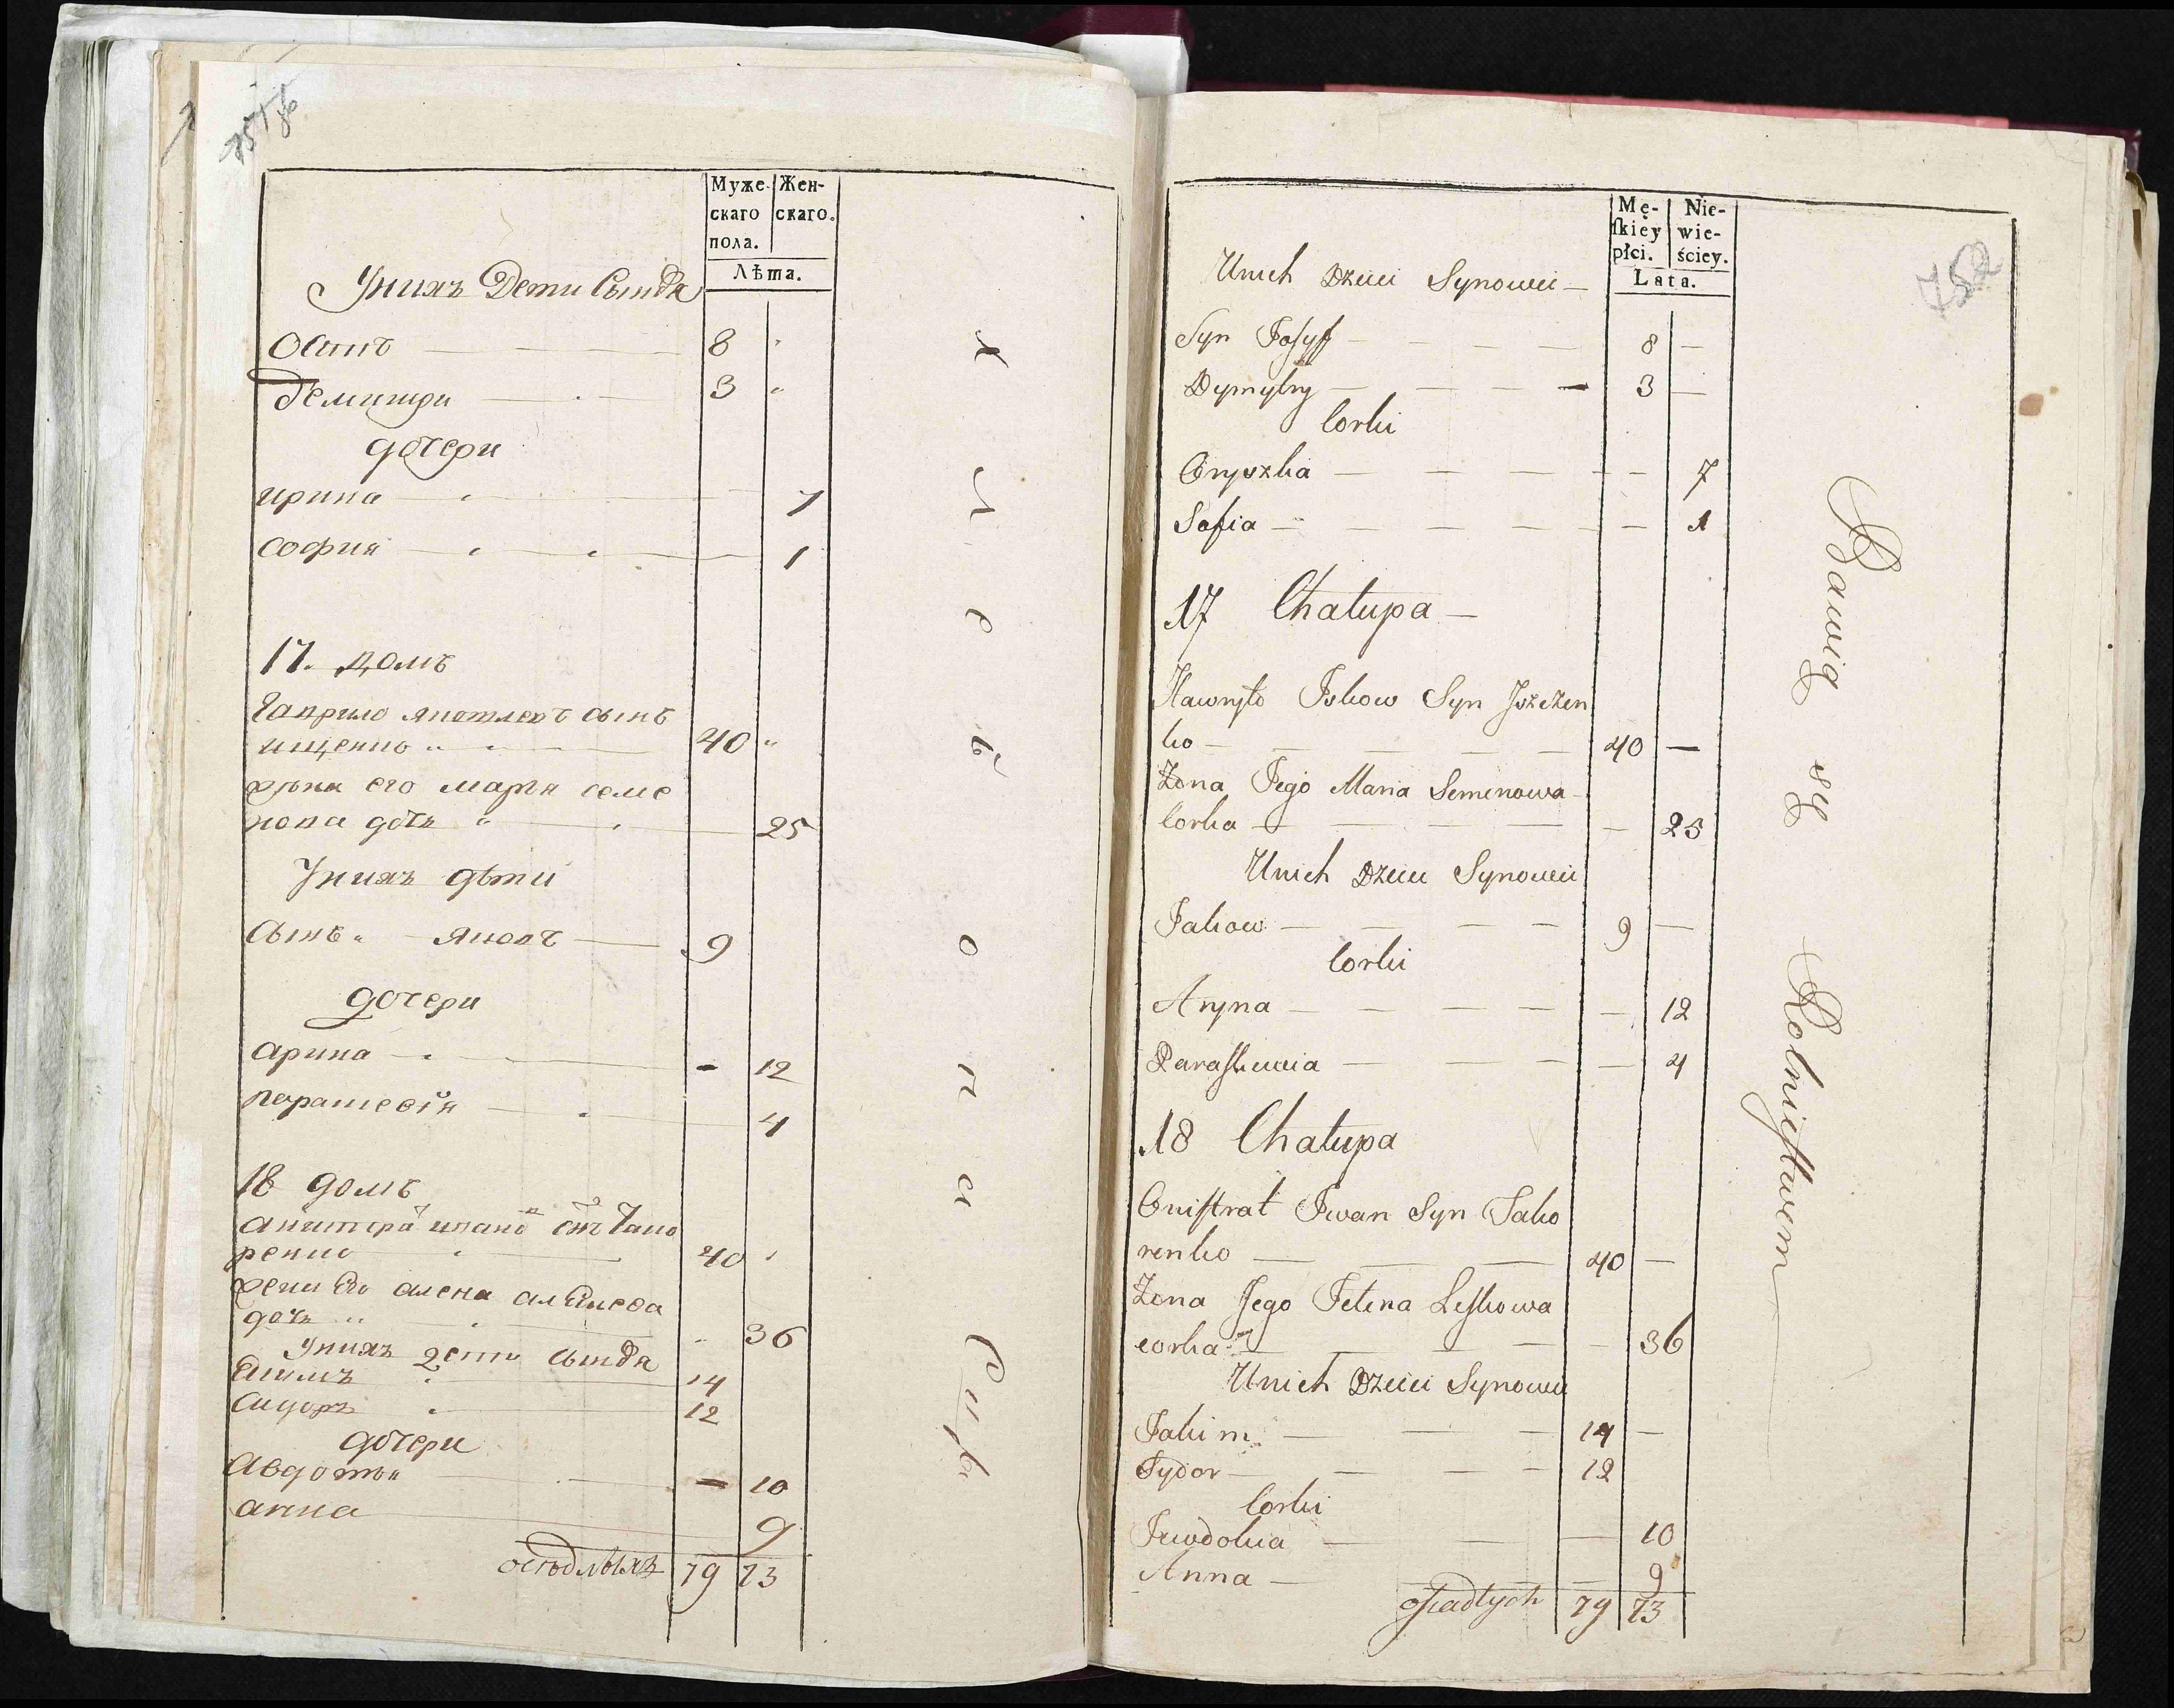 Муже-
скаго
пола.
Жен-
скаго.
Лѣта.
Унихъ Дети Сындя
Осипъ 8
Демитри 3
дочери
ирина 7
софия 1
17. домъ
Гаврило яковлевъ сынъ
ищенко 40
жена его марья семе
нова дочь 25
Унихъ дѣти
Сынъ яковъ 9
дочери
арина 12
парасковія 4
18 домъ
ренко 40
жена Его алена алексеева
дочь 36
Унихъ дети сындя
Екимъ 14
Сидоръ 12
дочери
Авдотья 10
анна 9
оседлыхъ 79 73
Mę-
ſkiey
płci.
Nie-
wie-
ściey.
Lata.
752
Unich Dzieci Synowie —
Syn Josyf — 8 —
Dymytry — 3 —
Corki
Oryszka — 7
Sofia — 1
17 Chałupa —
Hawryło Jskow Syn Jszczen
ko — 40 —
Żona Jego Maria Semenowa
Corka — 25
Unich Dzieci Synowie
Jakow — 9 —
Corki
Aryna — 12
Paraſkewia — 4
18 Chałupa
Oniſtrat Jwan Syn Sako
renko — 40 —
Żona Jego Jelena Leſkowa
corka — 36
Unich Dzieci Synowie
Jakim — 14 —
Sydor — 12
Corki
Jewdokia — 10
Anna — 9
oſiadłych 79 73
Bawią się Rolnictwem